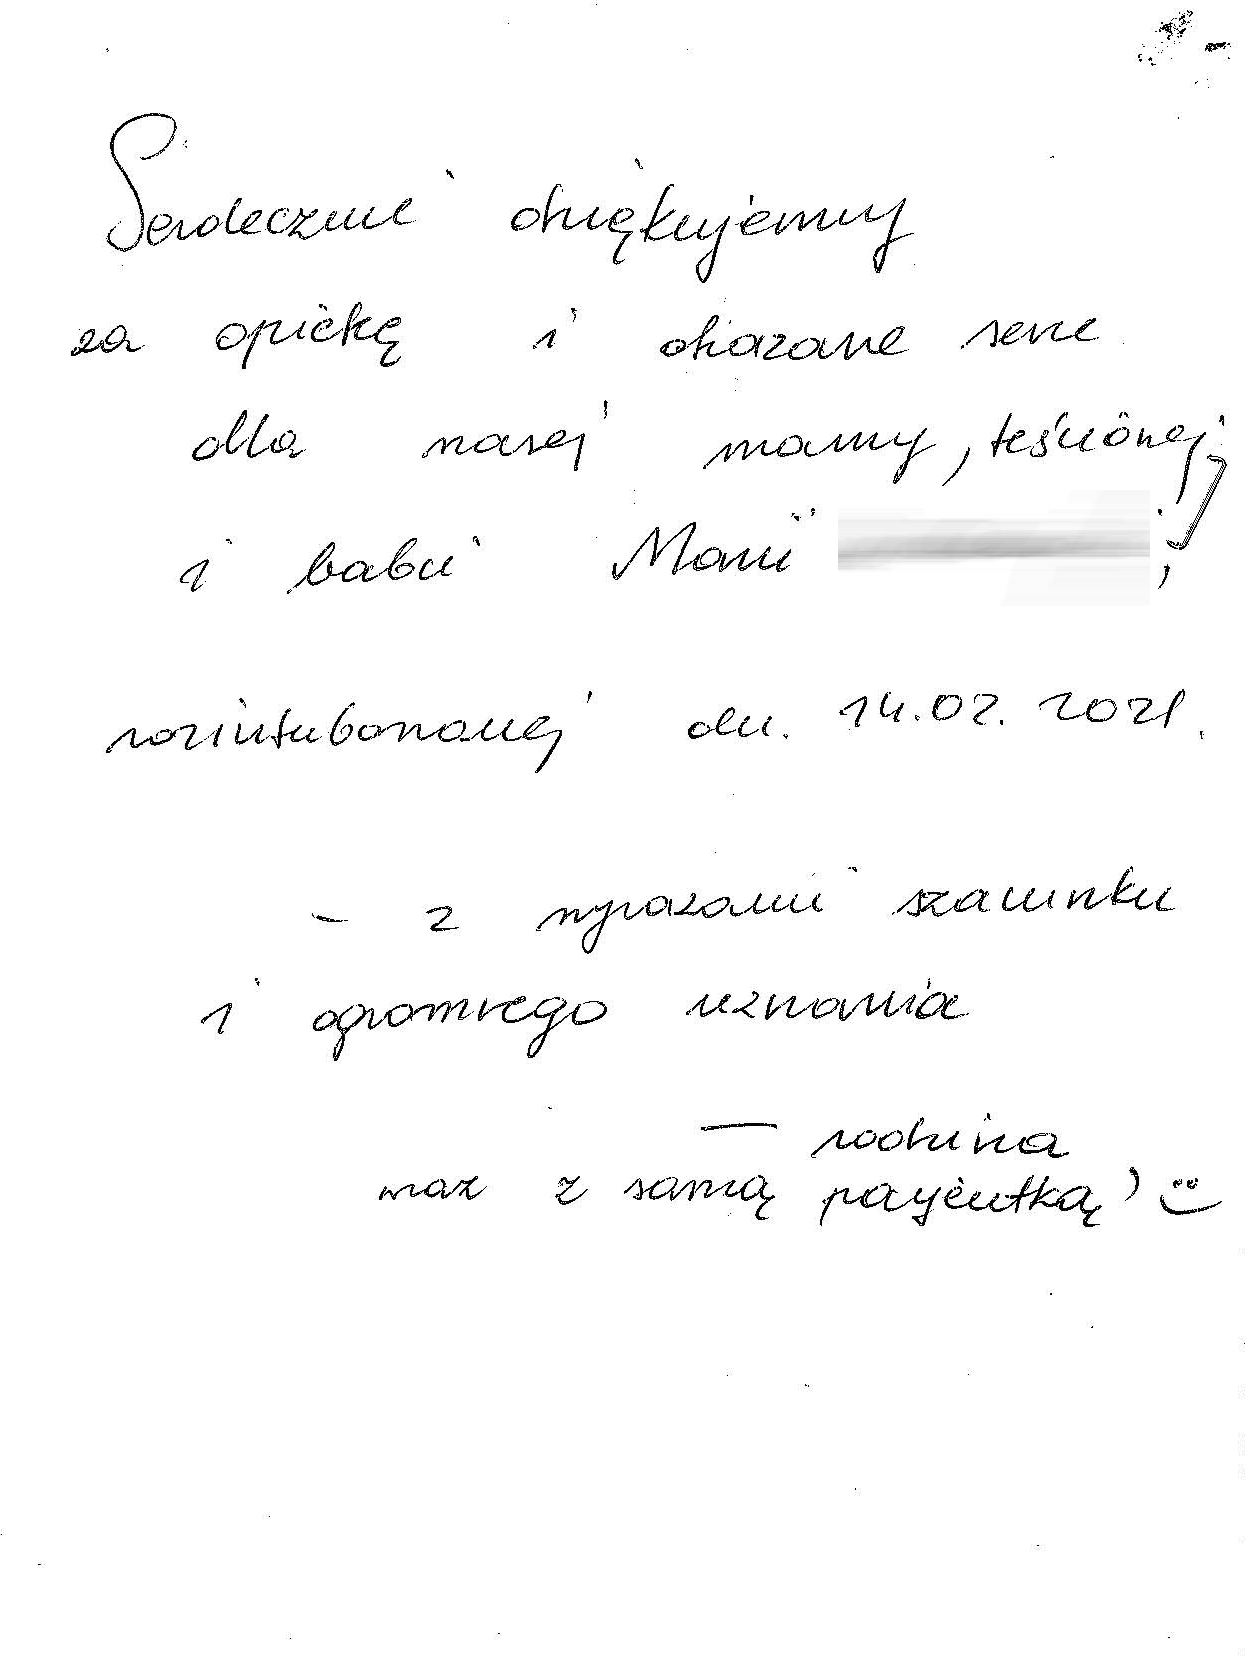 Serdecznie dziękujemy
za opiekę i okazane serce
dla naszej mamy, teściowej
i babci Marii ,
rozintubowanej dn. 14.02.2021.
- z wyrazami szacunku
i ogromnego uznania
- rodzina
wraz z samą pacjentką :)